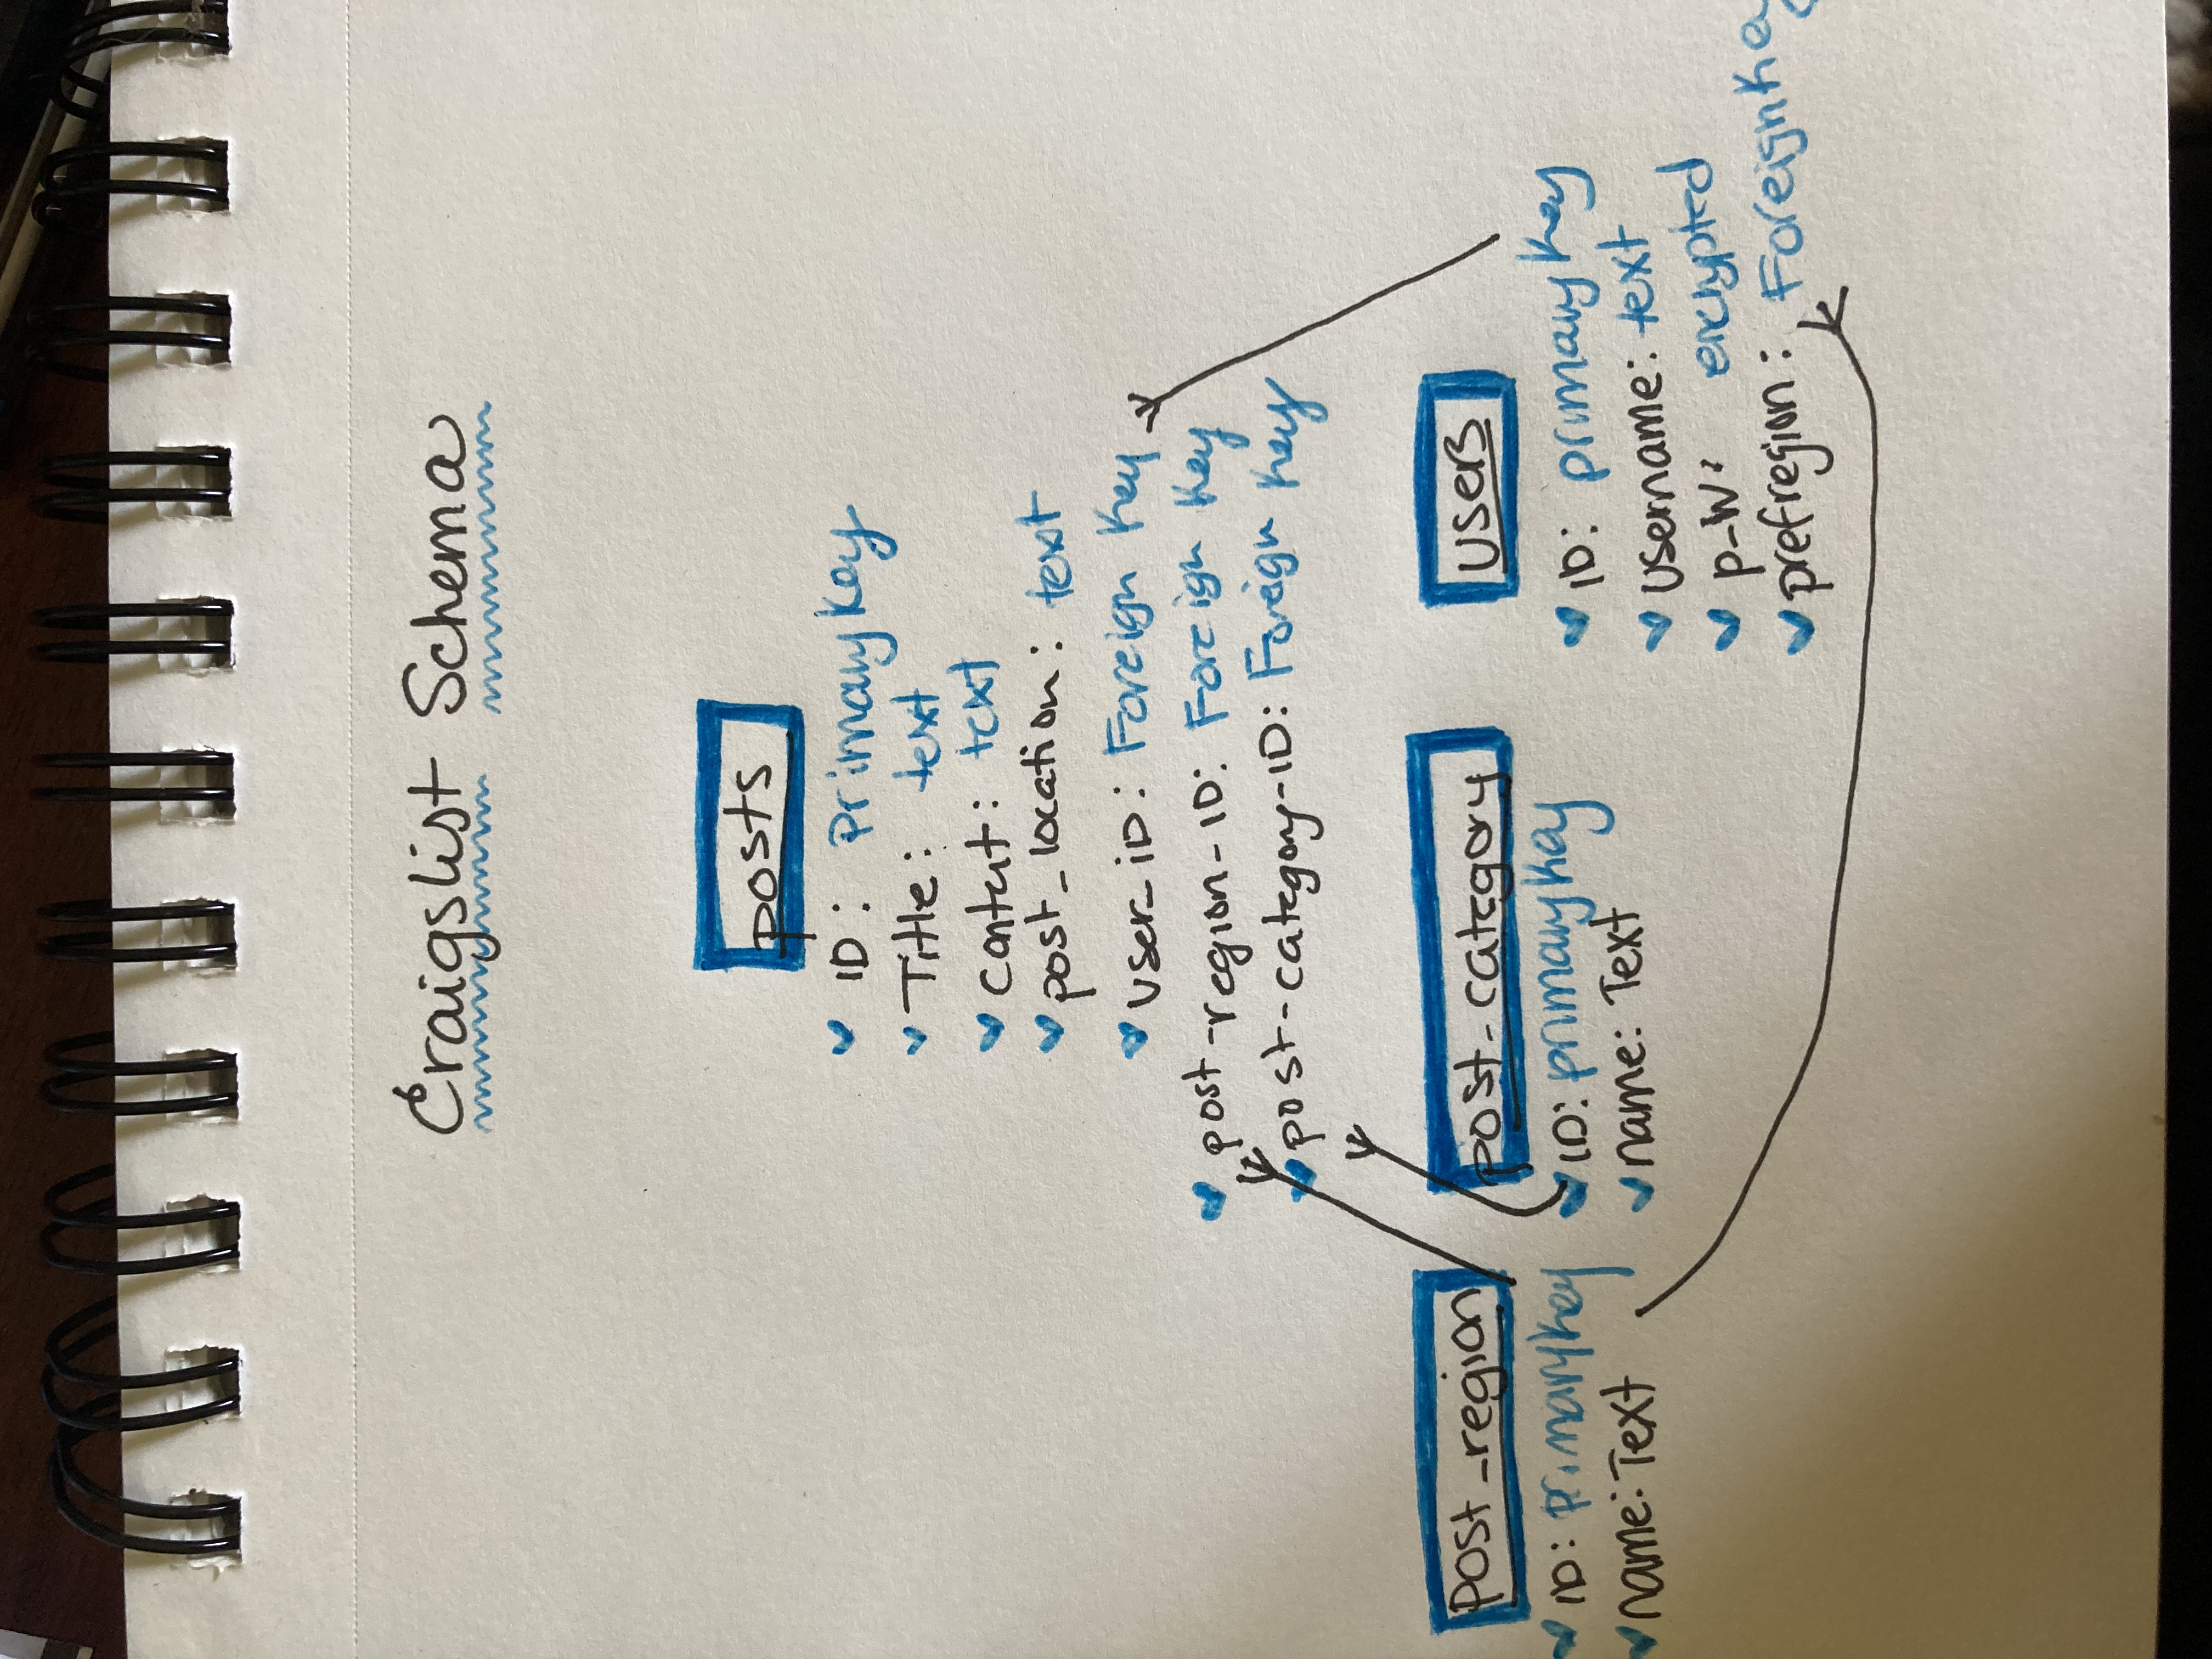 Craigslist Schema
posts
ID: Primary Key
Title: text
Content: text
post_location: text
user_ID: Foreign Key
post-region-ID: Foreign Key
post-category-ID: Foreign Key
post_region
ID: primary Key
name: Text
post_category
ID: primary Key
name: Text
users
ID: primary Key
Username: text
p-W: encrypted
prefregion: Foreign Key